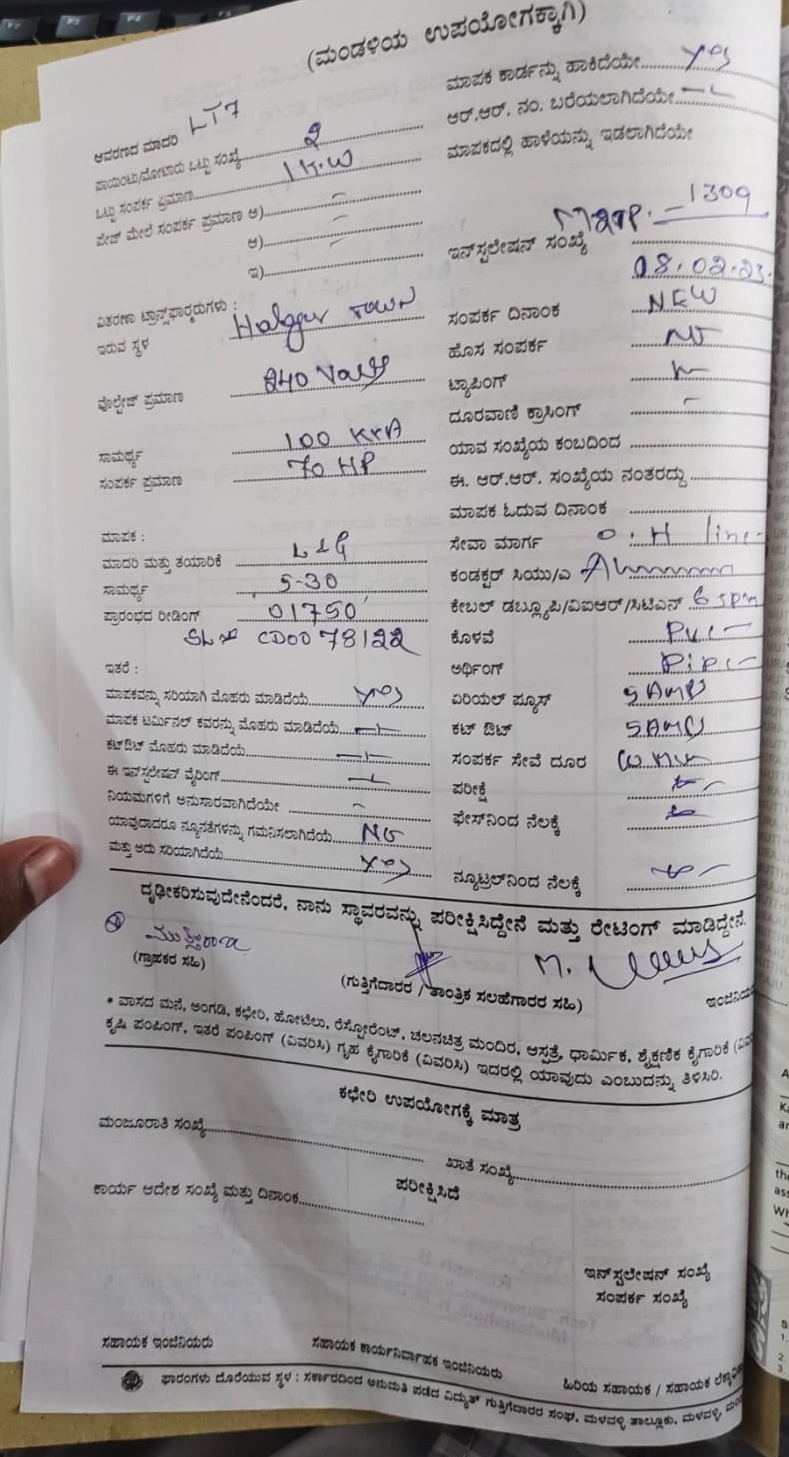 (ಮಂಡಳಿಯ ಉಪಯೋಗಕ್ಕಾಗಿ)
ಆವರಣದ ಮಾದರಿ LT7
ಪಾಯಿಂಟು/ಮೋಟಾರು ಒಟ್ಟು ಸಂಖ್ಯೆ 2
ಒಟ್ಟು ಸಂಪರ್ಕ ಪ್ರಮಾಣ 1K.W
ಪೇಜ್ ಮೇಲೆ ಸಂಪರ್ಕ ಪ್ರಮಾಣ ಅ)
ಆ)
ಇ)
ವಿತರಣಾ ಟ್ರಾನ್ಸ್‌ಫಾರ್ಮರುಗಳು :
ಇರುವ ಸ್ಥಳ Halgur Town
ವೊಲ್ಟೇಜ್ ಪ್ರಮಾಣ 240 Volts
ಸಾಮರ್ಥ್ಯ 100 KVA
ಸಂಪರ್ಕ ಪ್ರಮಾಣ 70 HP
ಮಾಪಕ :
ಮಾದರಿ ಮತ್ತು ತಯಾರಿಕೆ L&G
ಸಾಮರ್ಥ್ಯ 5-30
ಪ್ರಾರಂಭದ ರೀಡಿಂಗ್ 01750
SL no CD0078122
ಇತರೆ :
ಮಾಪಕವನ್ನು ಸರಿಯಾಗಿ ಮೊಹರು ಮಾಡಿದೆಯೆ yes
ಮಾಪಕ ಟರ್ಮಿನಲ್ ಕವರನ್ನು ಮೊಹರು ಮಾಡಿದೆಯೆ
ಕಟ್‌ಔಟ್ ಮೊಹರು ಮಾಡಿದೆಯೆ
ಈ ಇನ್‌ಸ್ಪಲೇಷನ್ ವೈರಿಂಗ್
ನಿಯಮಗಳಿಗೆ ಅನುಸಾರವಾಗಿದೆಯೇ
ಯಾವುದಾದರೂ ನ್ಯೂನತೆಗಳನ್ನು ಗಮನಿಸಲಾಗಿದೆಯೆ NO
ಮತ್ತು ಅದು ಸರಿಯಾಗಿದೆಯೆ yes
ಮಾಪಕ ಕಾರ್ಡನ್ನು ಹಾಕಿದೆಯೇ yes
ಆರ್.ಆರ್. ನಂ. ಬರೆಯಲಾಗಿದೆಯೇ
ಮಾಪಕದಲ್ಲಿ ಹಾಳೆಯನ್ನು ಇಡಲಾಗಿದೆಯೇ
ಇನ್‌ಸ್ಪಲೇಷನ್ ಸಂಖ್ಯೆ 1309
ಸಂಪರ್ಕ ದಿನಾಂಕ 08.02.23
ಹೊಸ ಸಂಪರ್ಕ NEW
ಟ್ಯಾಪಿಂಗ್
ದೂರವಾಣಿ ಕ್ರಾಸಿಂಗ್
ಯಾವ ಸಂಖ್ಯೆಯ ಕಂಬದಿಂದ
ಈ. ಆರ್.ಆರ್. ಸಂಖ್ಯೆಯ ನಂತರದ್ದು
ಮಾಪಕ ಓದುವ ದಿನಾಂಕ
ಸೇವಾ ಮಾರ್ಗ O.H line
ಕಂಡಕ್ಟರ್ ಸಿಯು/ಎ
ಕೇಬಲ್ ಡಬ್ಲ್ಯೂಪಿ/ವಿಐಆರ್/ಸಿಟಿಎಸ್
ಕೊಳವೆ PVC
ಅರ್ಥಿಂಗ್ Pipe
ಏರಿಯಲ್ ಫ್ಯೂಸ್
ಕಟ್ ಔಟ್
ಸಂಪರ್ಕ ಸೇವೆ ದೂರ
ಪರೀಕ್ಷೆ
ಫೇಸ್‌ನಿಂದ ನೆಲಕ್ಕೆ
ನ್ಯೂಟ್ರಲ್‌ನಿಂದ ನೆಲಕ್ಕೆ
ದೃಢೀಕರಿಸುವುದೇನೆಂದರೆ, ನಾನು ಸ್ಥಾವರವನ್ನು ಪರೀಕ್ಷಿಸಿದ್ದೇನೆ ಮತ್ತು ರೇಟಿಂಗ್ ಮಾಡಿದ್ದೇನೆ.
(ಗ್ರಾಹಕರ ಸಹಿ)
(ಗುತ್ತಿಗೆದಾರರ / ತಾಂತ್ರಿಕ ಸಲಹೆಗಾರರ ಸಹಿ)
* ವಾಸದ ಮನೆ, ಅಂಗಡಿ, ಕಛೇರಿ, ಹೋಟೆಲು, ರೆಸ್ಟೋರೆಂಟ್, ಚಲನಚಿತ್ರ ಮಂದಿರ, ಆಸ್ಪತ್ರೆ, ಧಾರ್ಮಿಕ, ಶೈಕ್ಷಣಿಕ ಕೈಗಾರಿಕೆ
ಕೃಷಿ ಪಂಪಿಂಗ್, ಇತರೆ ಪಂಪಿಂಗ್ (ವಿವರಿಸಿ) ಗೃಹ ಕೈಗಾರಿಕೆ (ವಿವರಿಸಿ) ಇದರಲ್ಲಿ ಯಾವುದು ಎಂಬುದನ್ನು ತಿಳಿಸಿರಿ.
ಕಛೇರಿ ಉಪಯೋಗಕ್ಕೆ ಮಾತ್ರ
ಮಂಜೂರಾತಿ ಸಂಖ್ಯೆ
ಖಾತೆ ಸಂಖ್ಯೆ
ಪರೀಕ್ಷಿಸಿದೆ
ಕಾರ್ಯ ಆದೇಶ ಸಂಖ್ಯೆ ಮತ್ತು ದಿನಾಂಕ
ಇನ್‌ಸ್ಪಲೇಷನ್ ಸಂಖ್ಯೆ
ಸಂಪರ್ಕ ಸಂಖ್ಯೆ
ಸಹಾಯಕ ಇಂಜಿನಿಯರು
ಸಹಾಯಕ ಕಾರ್ಯನಿರ್ವಾಹಕ ಇಂಜಿನಿಯರು
ಹಿರಿಯ ಸಹಾಯಕ / ಸಹಾಯಕ
ಫಾರಂಗಳು ದೊರೆಯುವ ಸ್ಥಳ : ಸರ್ಕಾರದಿಂದ ಅನುಮತಿ ಪಡೆದ ವಿದ್ಯುತ್ ಗುತ್ತಿಗೆದಾರರ ಸಂಘ, ಮಳವಳ್ಳಿ ತಾಲ್ಲೂಕು, ಮಳವಳ್ಳಿ,